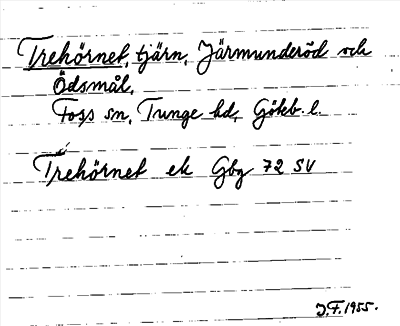 Trehörnet, tjärn, Järmunderöd och
Ödsmål,
Foss sn, Tunge hd, Gökb. l.
Trehörnet ek Gbg 72 SV
J.F. 1955.